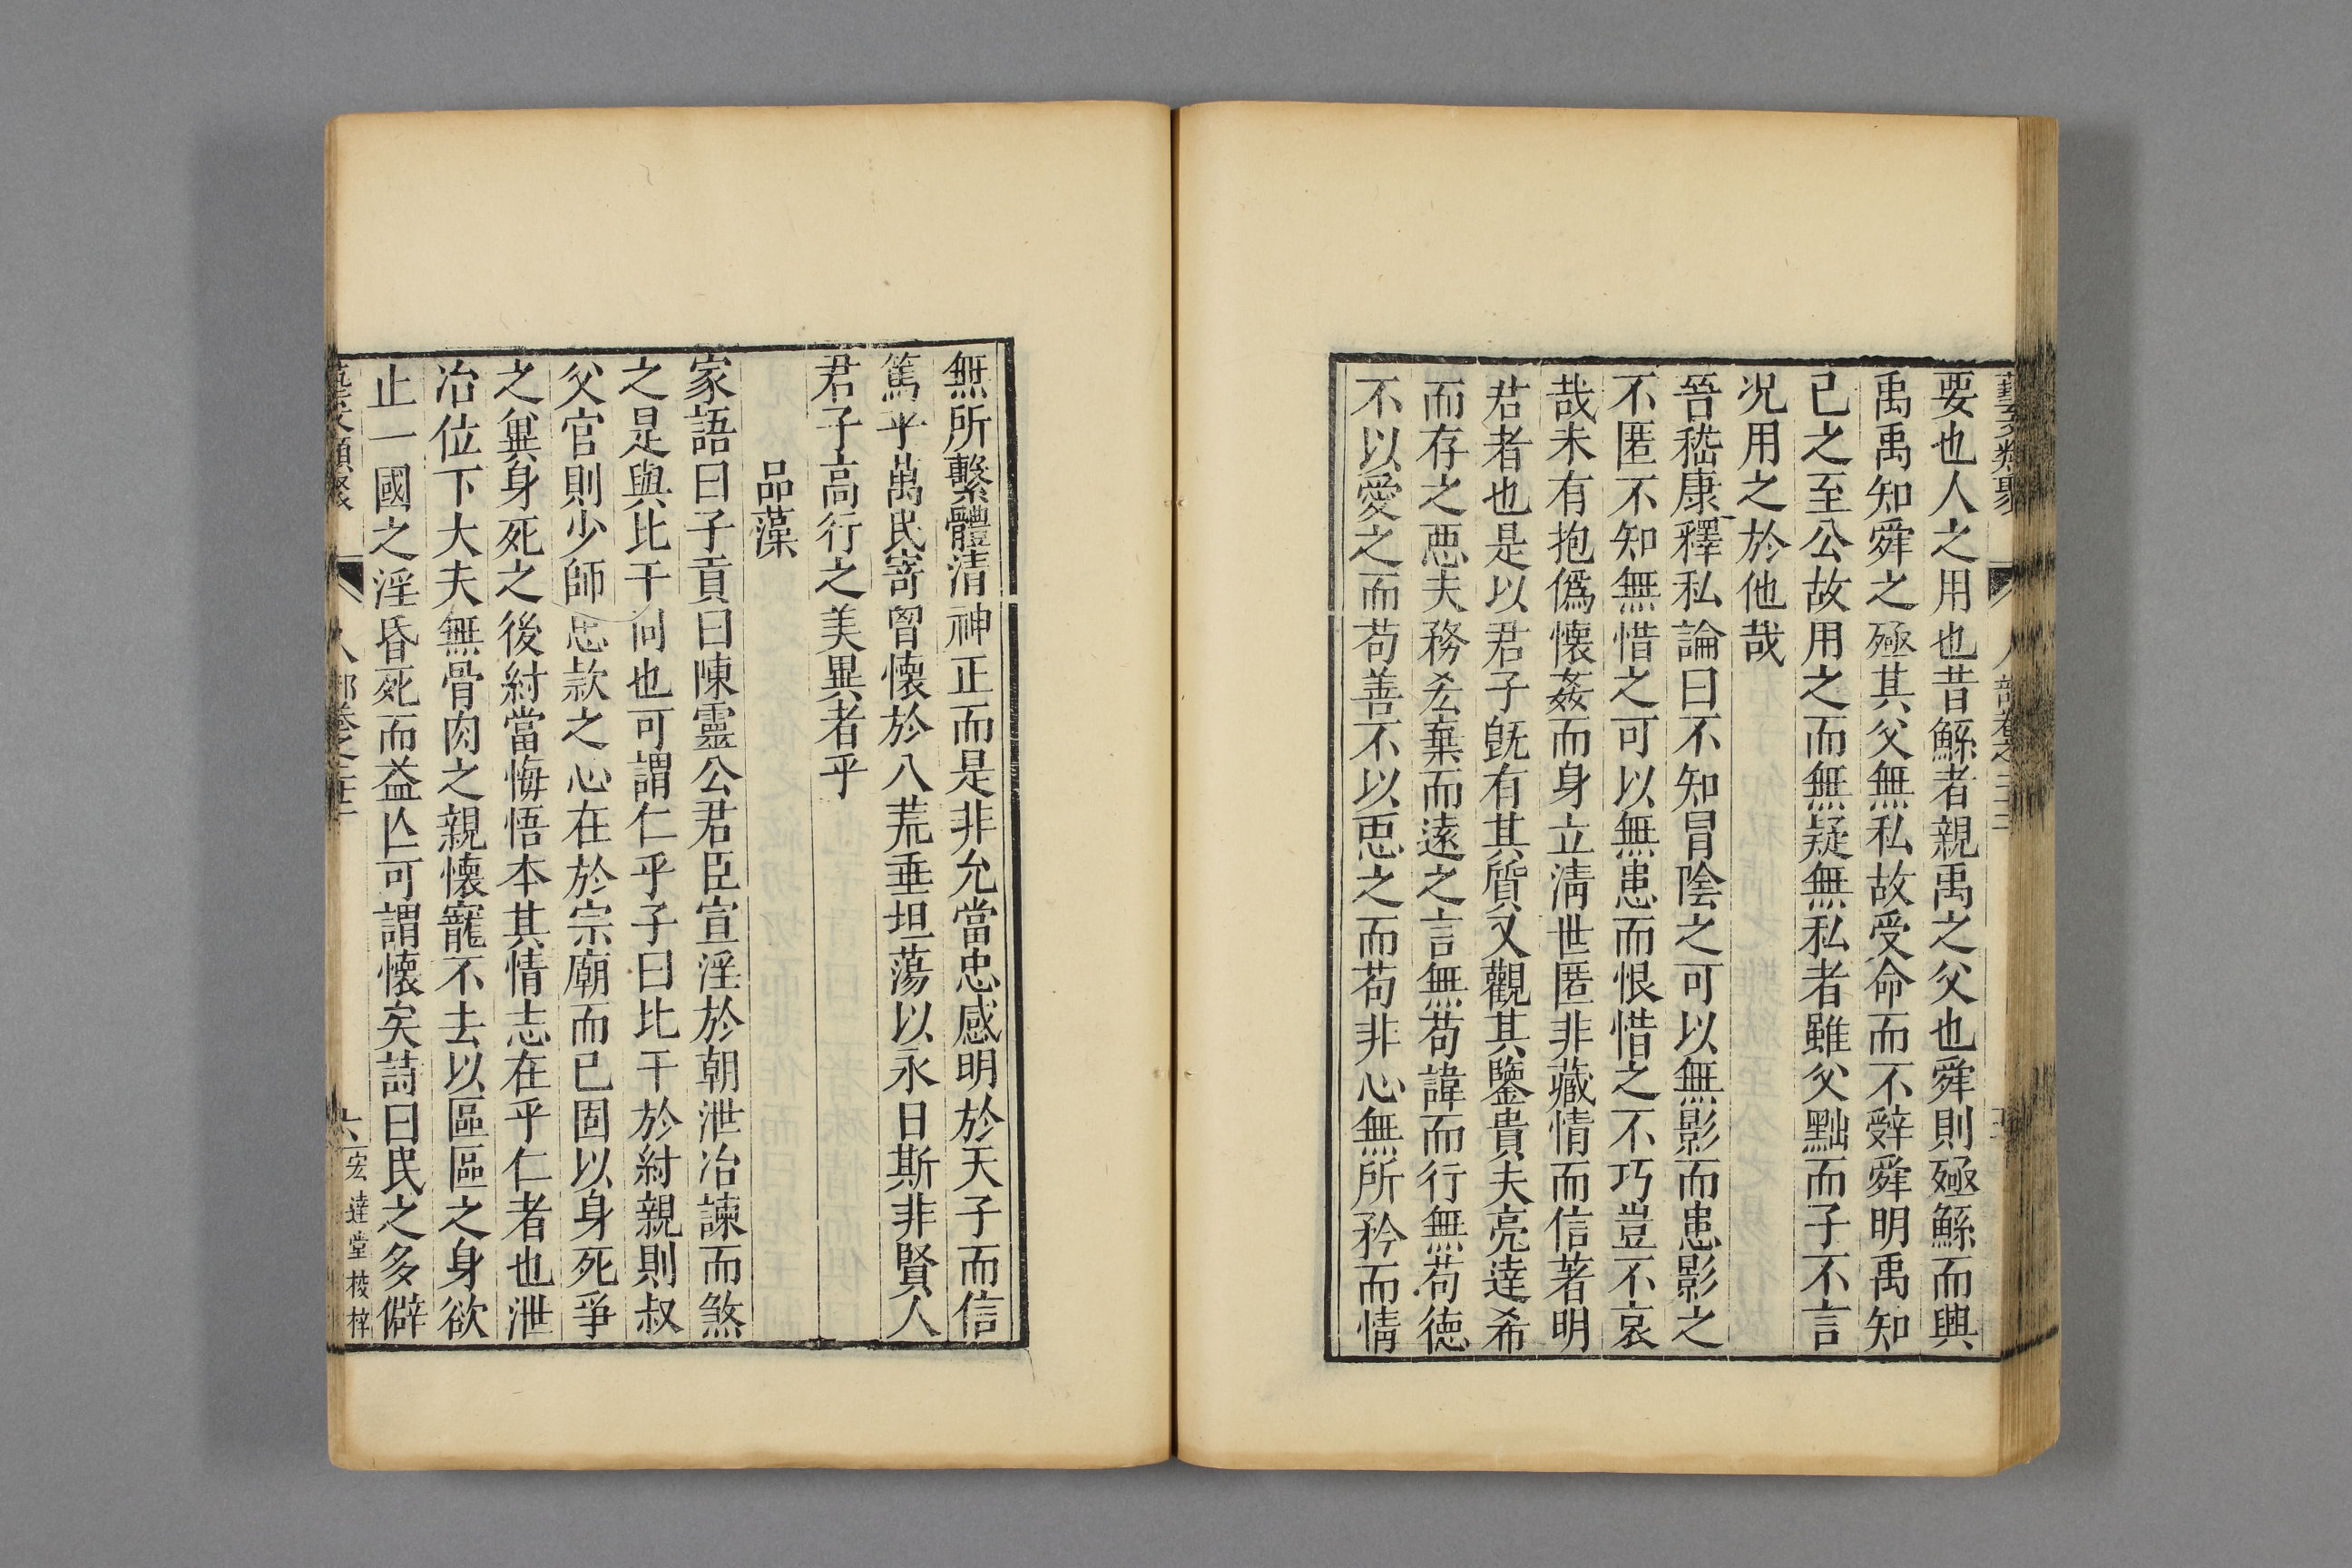 藝文類聚 人部卷之二十二
要也人之用也昔鯀者親禹之父也舜則殛鯀而興
禹禹知舜之殛其父無私故受命而不辭舜明禹知
已之至公故用之而無疑無私者雖父黜而子不言
况用之於他哉
晉嵇康釋私論曰不知冒陰之可以無影而患影之
不匿不知無惜之可以無患而恨惜之不巧豈不哀
哉未有抱僞懷姦而身立淸世匿非藏情而信著明
君者也是以君子旣有其質又觀其鑒貴夫亮達希
而存之惡夫務丟棄而遠之言無苟諱而行無苟德
不以愛之而苟善不以惡之而苟非心無所矜而情
無所繫體清神正而是非允當忠感明於天子而信
篤乎萬民寄胷懷於八荒垂坦蕩以永日斯非賢人
君子高行之美異者乎
品藻
家語曰子貢曰陳靈公君臣宣淫於朝泄冶諫而煞
之是與比干同也可謂仁乎子曰比干於紂親則叔
父官則少師忠款之心在於宗廟而已固以身死爭
之兾身死之後紂當悔悟本其情志在乎仁者也泄
冶位下大夫無骨肉之親懷寵不去以區區之身欲
止一國之淫昏死而益亾可謂懷矣詩曰民之多僻
藝文類聚 人部卷之二十二 六 宏達堂挍梓